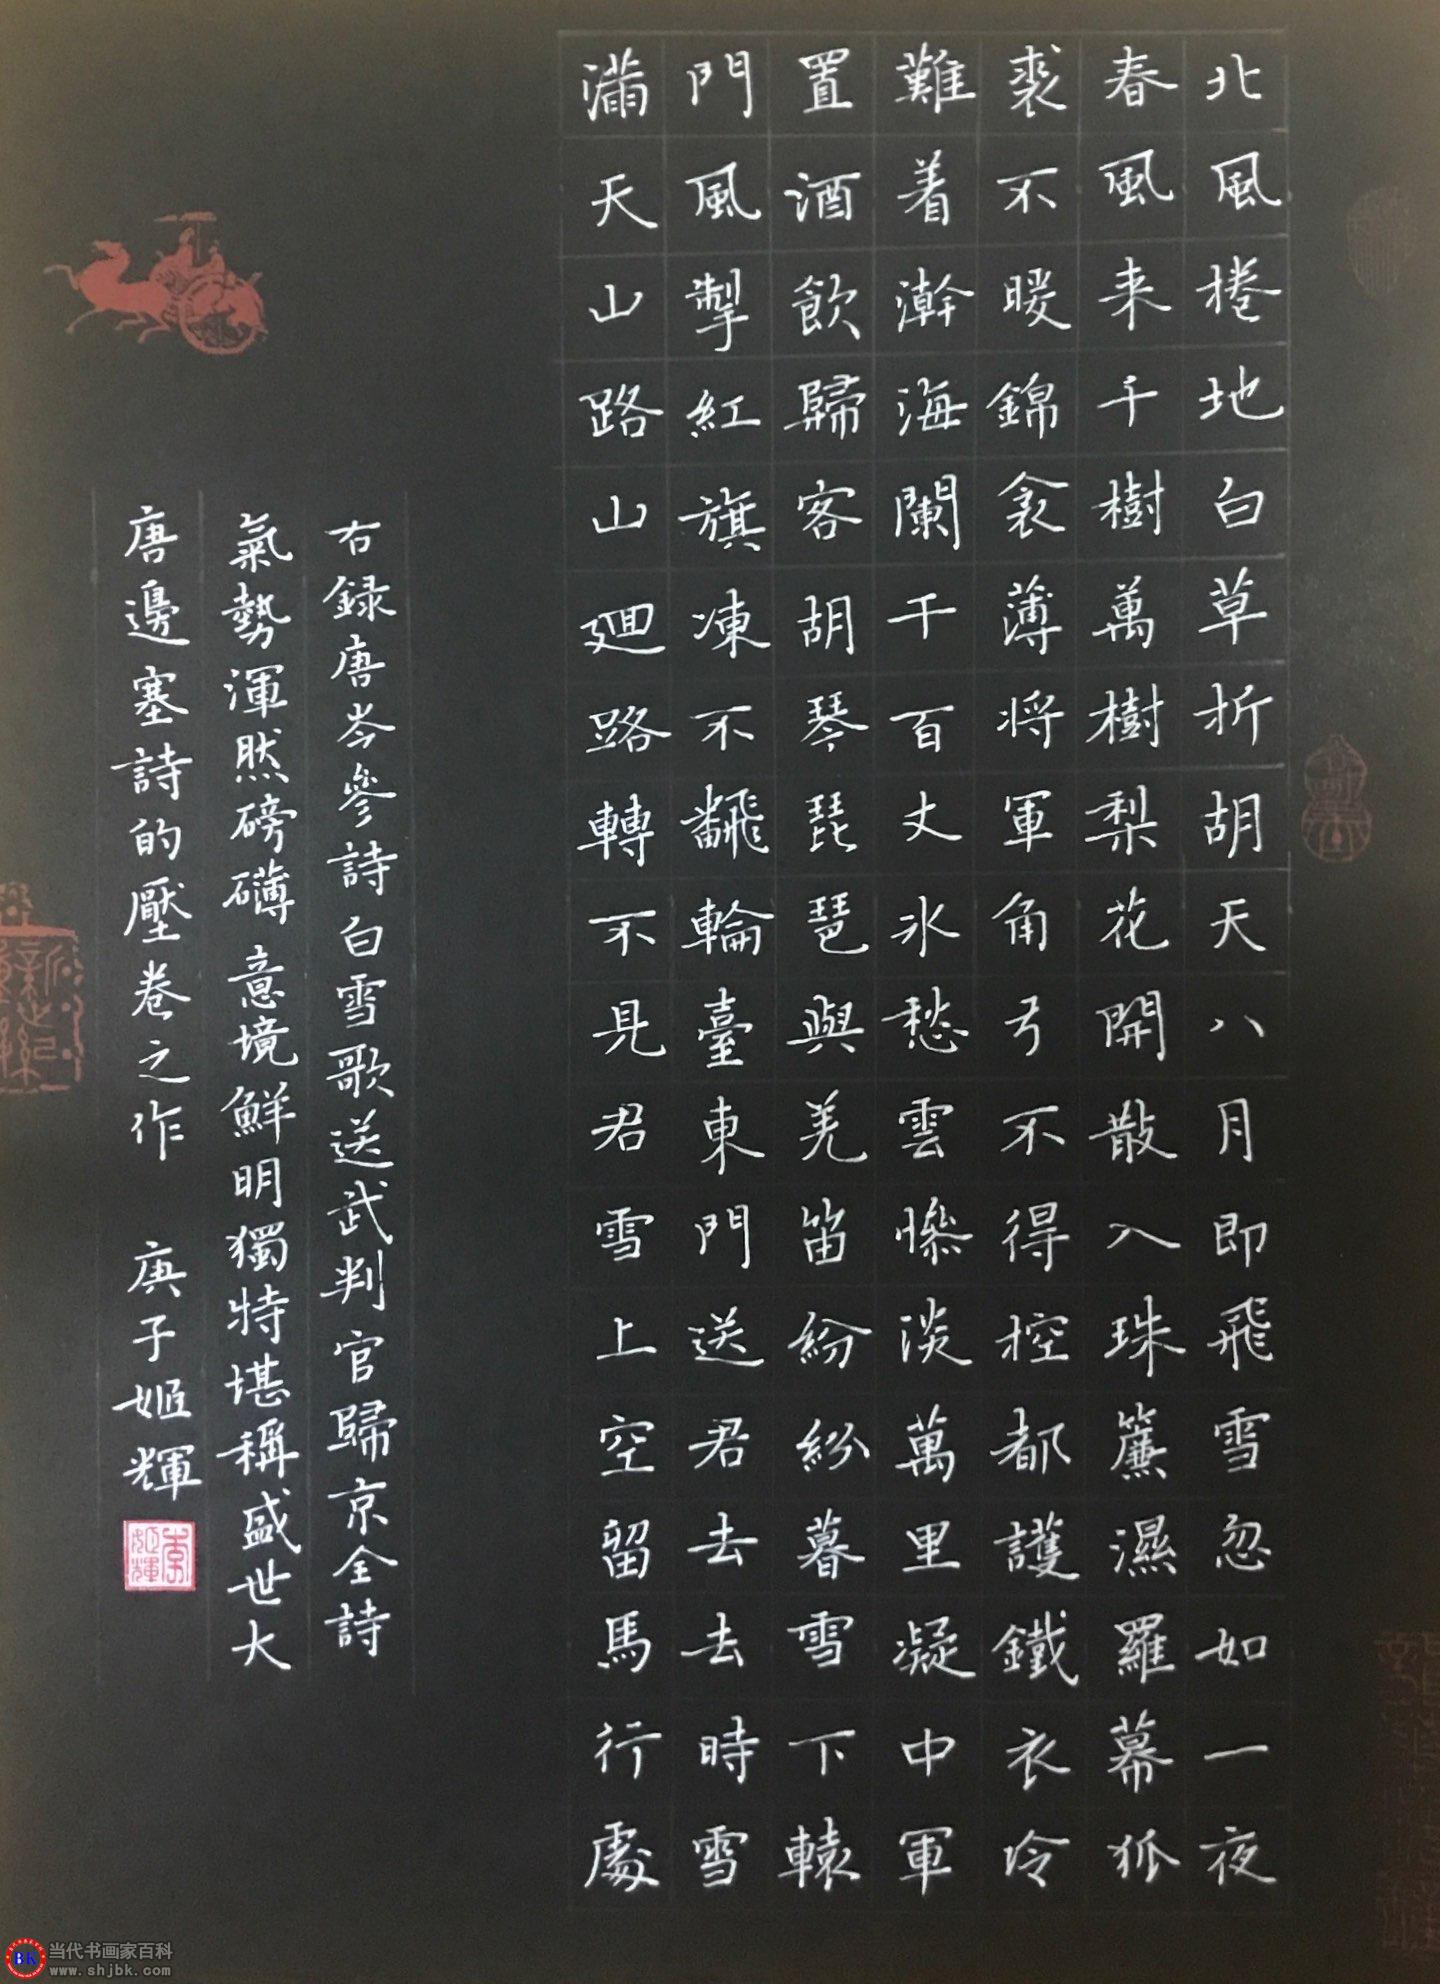 北風捲地白草折胡天八月即飛雪忽如一夜
春風来千樹萬樹梨花開散入珠簾濕羅幕狐
裘不暖錦衾薄将軍角弓不得控都護鐵衣冷
難着瀚海闌干百丈氷愁雲慘淡萬里凝中軍
置酒飲歸客胡琴琵琶與羌笛紛紛暮雪下轅
門風掣紅旗凍不飜輪臺東門送君去去時雪
滿天山路山廻路轉不見君雪上空留馬行處
右録唐岑參詩白雪歌送武判官歸京全詩
氣勢渾然磅礴意境鮮明獨特堪稱盛世大
唐邊塞詩的壓卷之作 庚子姬輝
BK 当代书画家百科
www.shjbk.com